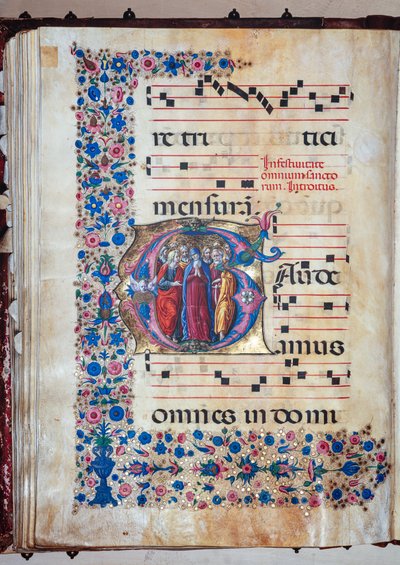 re tri tici
In festiuitate
omnium sancto
rum. Introitus.
mensurā
GAude
amus
omnes in domi